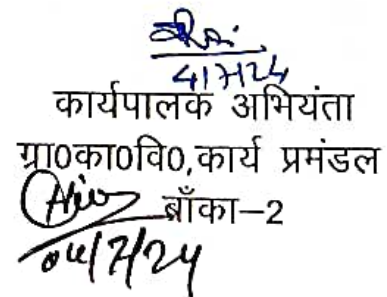 4/7/24
कार्यपालक अभियंता
ग्रा०का०वि०,कार्य प्रमंडल
बाँका-2
04/7/24